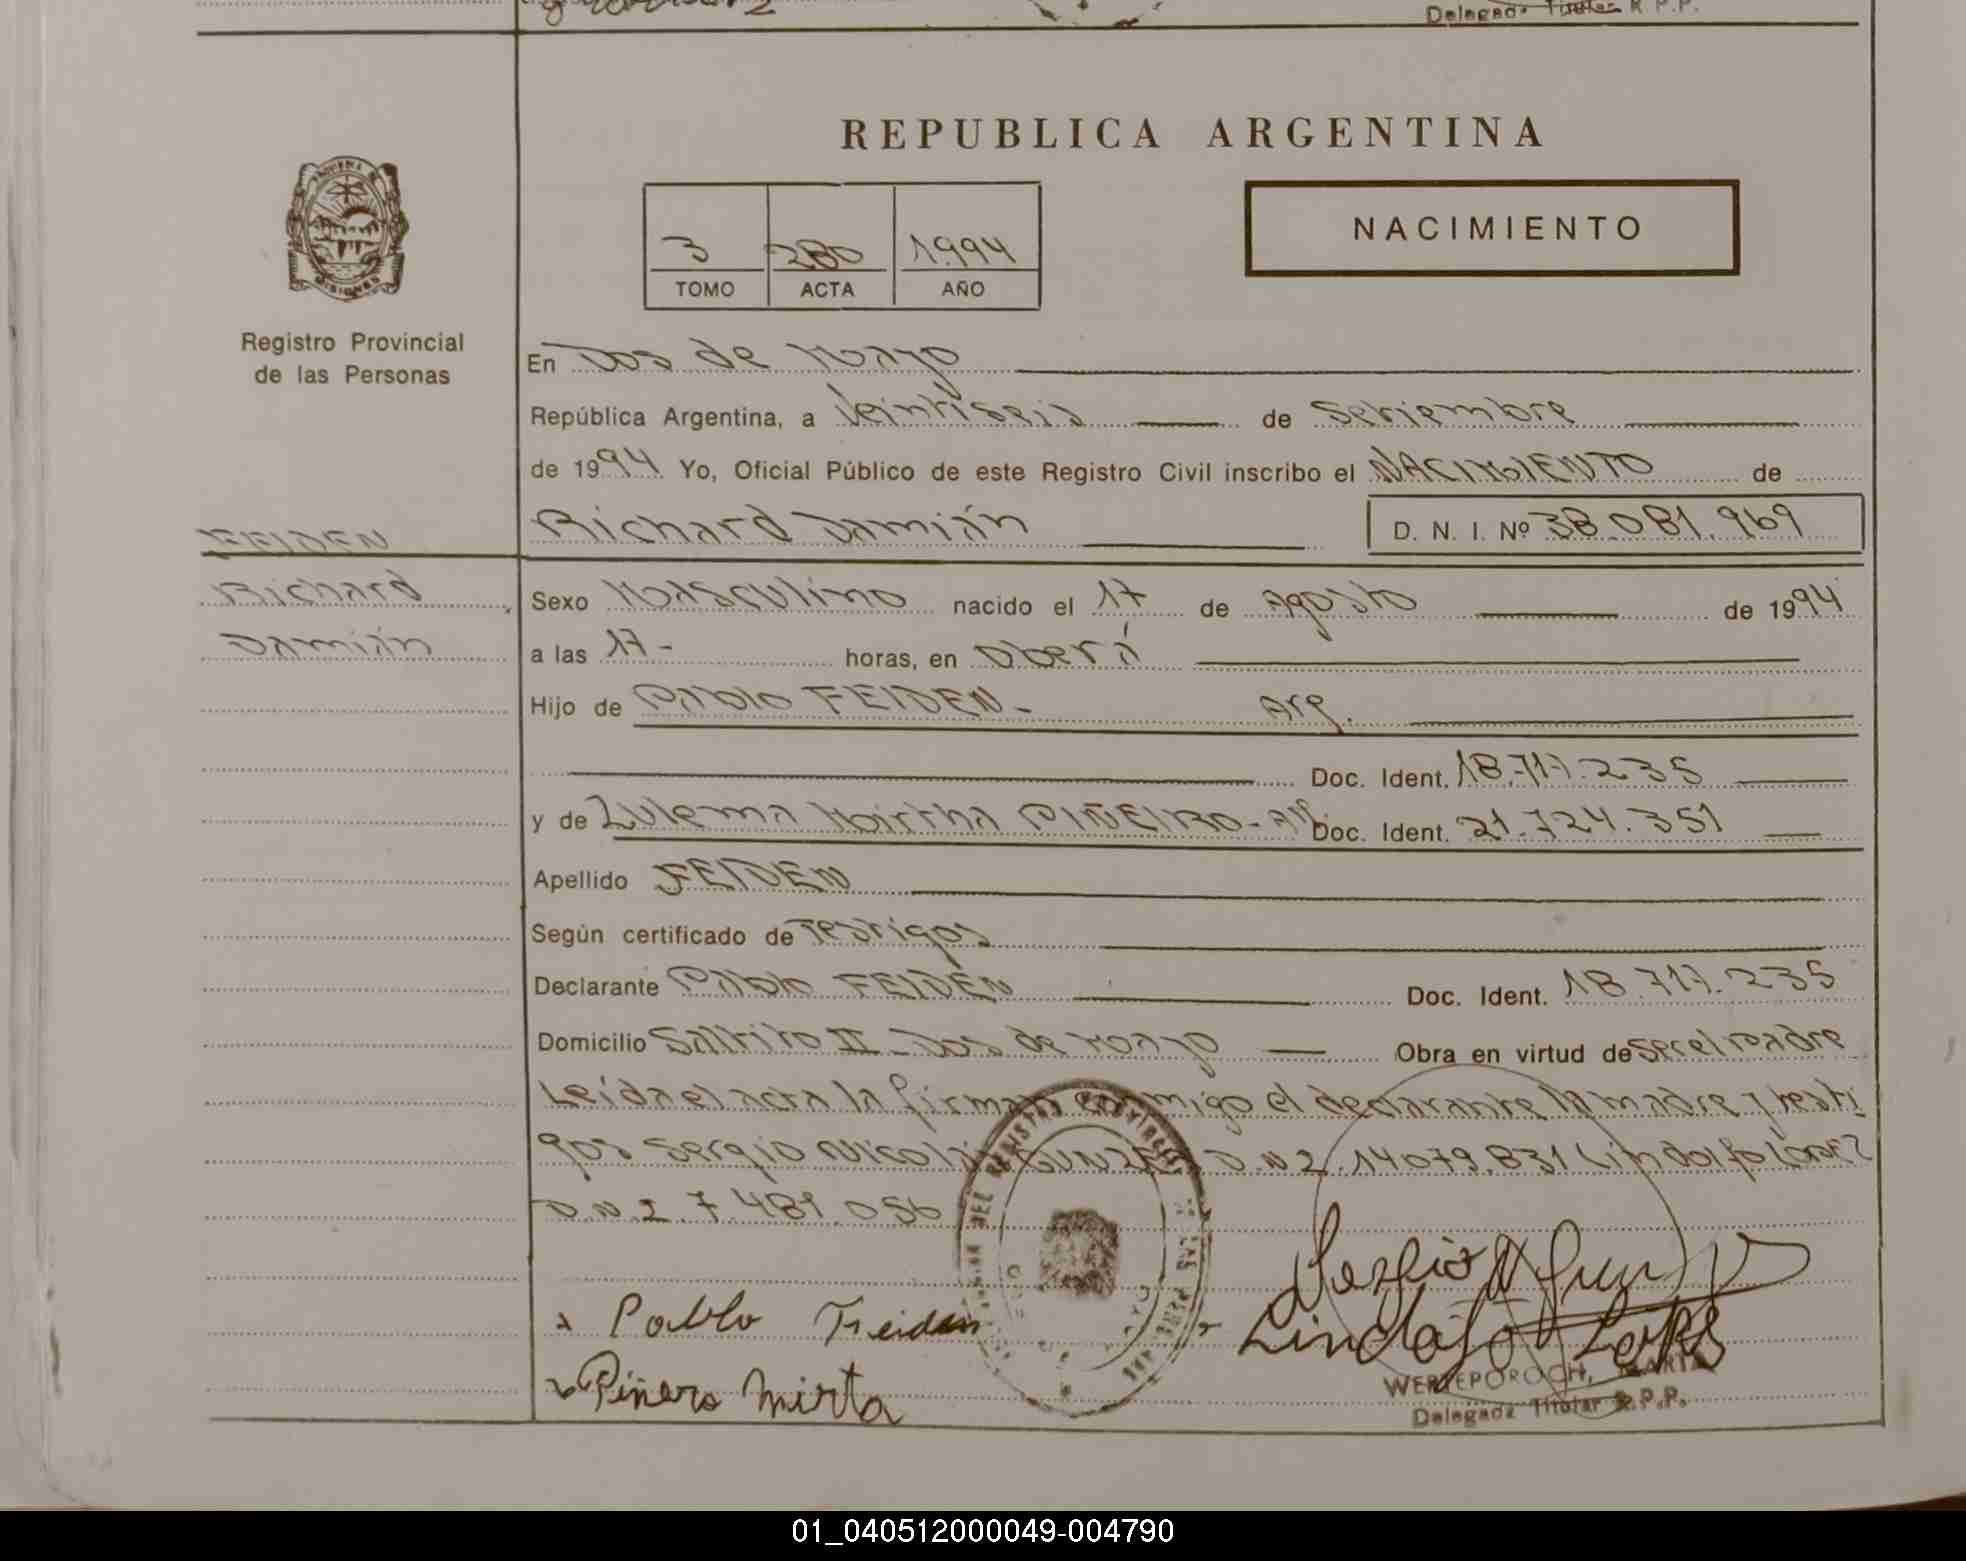 Delegada Titular R.P.P.
REPUBLICA ARGENTINA
NACIMIENTO
3 280 1994
TOMO ACTA AÑO
MISIONES
Registro Provincial
de las Personas
En Dos de Mayo
República Argentina, a Veintiseis de Setiembre
de 1994 Yo, Oficial Público de este Registro Civil inscribo el NACIMIENTO de
FEIDEN
Richard Damián D. N. I. Nº 38.081.969
Richard
Damián
Sexo Masculino nacido el 17 de Agosto de 1994
a las 17- horas, en Oberá
Hijo de Pablo FEIDEN- Arg.
Doc. Ident. 18.717.235
y de Zulema Mirtha PIÑEIRO- Arg Doc. Ident. 21.724.351
Apellido FEIDEN
Según certificado de Testigos
Declarante Pablo FEIDEN Doc. Ident. 18.717.235
Domicilio Saltito II - Dos de Mayo Obra en virtud de ser el padre
Leída el acta la firman conmigo el declarante la madre y testi
gos Sergio Nicolás D.N.I. 14079.831 Lindolfo López
D.N.I. 7.481.056
Pablo Feiden
Piñero Mirta
Sergio N
Lindolfo Lopez
MARIA
Delegada Titular R.P.P.
01_040512000049-004790